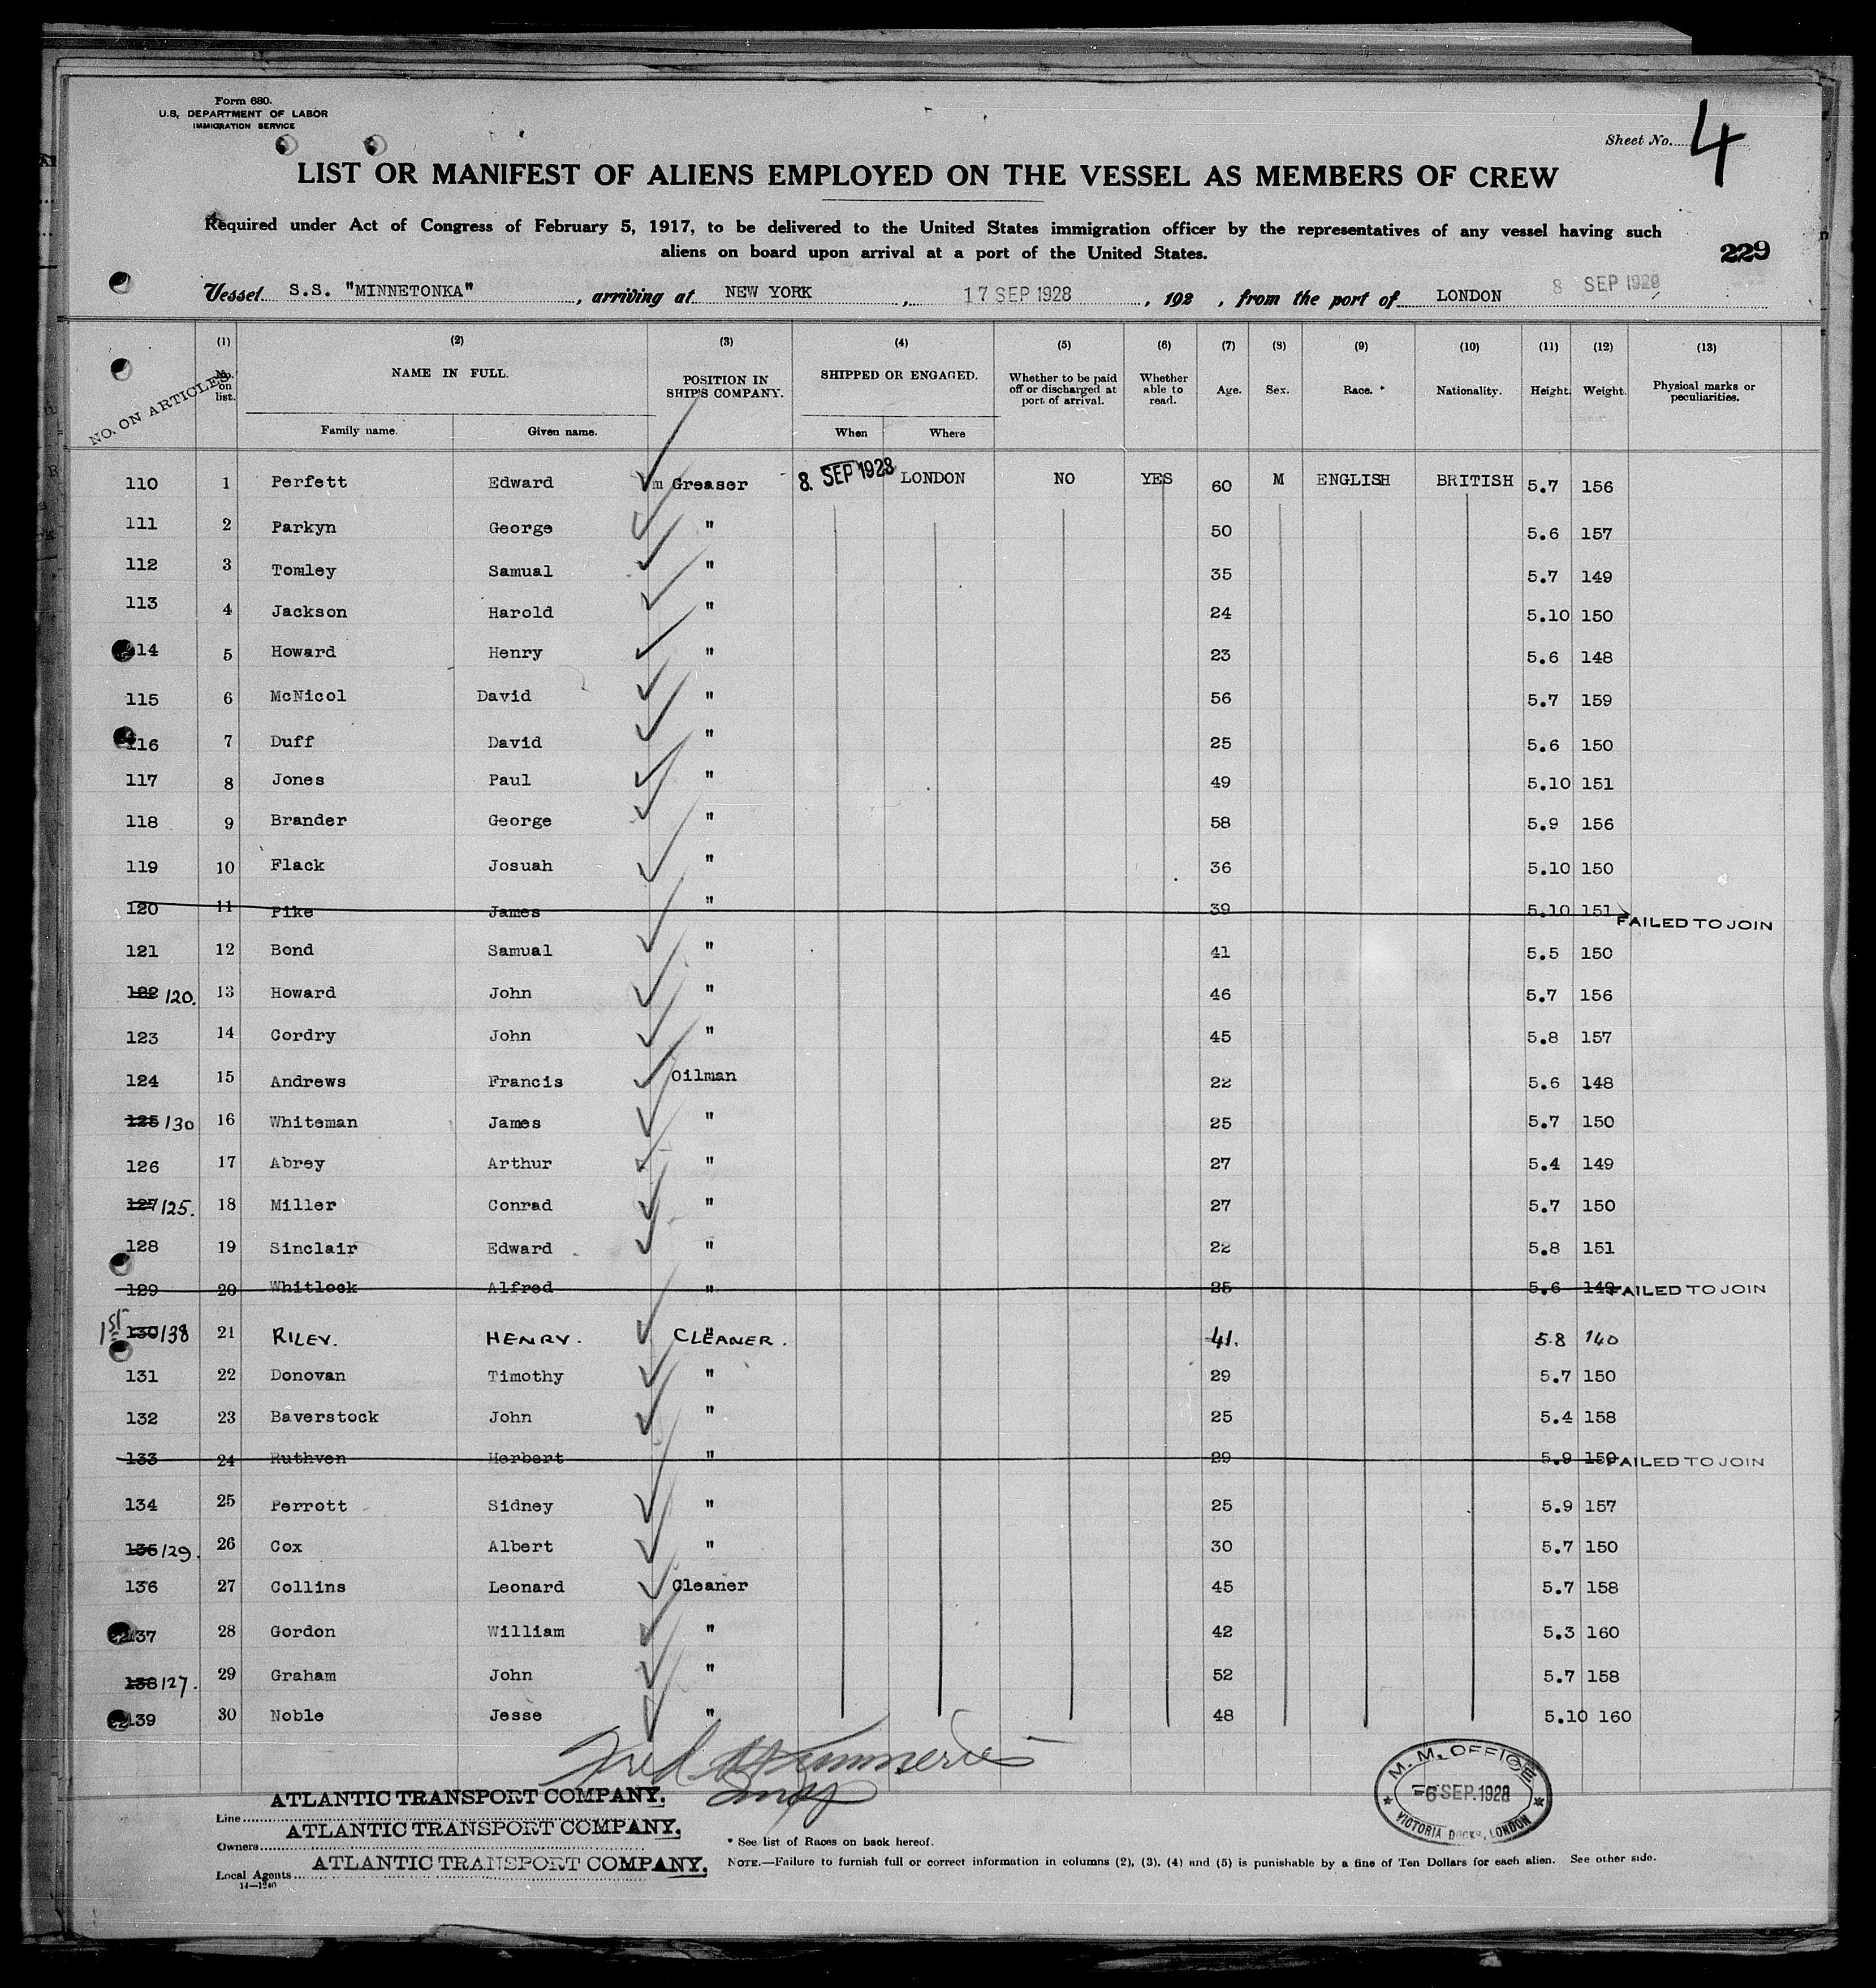 Form 680.
U.S. DEPARTMENT OF LABOR
IMMIGRATION SERVICE
Sheet No. 4
LIST OR MANIFEST OF ALIENS EMPLOYED ON THE VESSEL AS MEMBERS OF CREW
Required under Act of Congress of February 5, 1917, to be delivered to the United States immigration officer by the representatives of any vessel having such
aliens on board upon arrival at a port of the United States.
229
Vessel S.S. "MINNETONKA", arriving at NEW YORK, 17 SEP 1928, 192 , from the port of LONDON 8 SEP 1928
(1) (2) (3) (4) (5) (6) (7) (8) (9) (10) (11) (12) (13)
NO. ON ARTICLES. No. on list. NAME IN FULL. POSITION IN SHIP'S COMPANY. SHIPPED OR ENGAGED. Whether to be paid off or discharged at port of arrival. Whether able to read. Age. Sex. Race.* Nationality. Height. Weight. Physical marks or peculiarities.
Family name. Given name. When Where
110 1 Perfett Edward m Greaser 8. SEP 1928 LONDON NO YES 60 M ENGLISH BRITISH 5.7 156
111 2 Parkyn George " 50 5.6 157
112 3 Tomley Samual " 35 5.7 149
113 4 Jackson Harold " 24 5.10 150
114 5 Howard Henry " 23 5.6 148
115 6 McNicol David " 56 5.7 159
116 7 Duff David " 25 5.6 150
117 8 Jones Paul " 49 5.10 151
118 9 Brander George " 58 5.9 156
119 10 Flack Josuah " 36 5.10 150
120 11 Pike James " 39 5.10 151 FAILED TO JOIN
121 12 Bond Samual " 41 5.5 150
122 120. 13 Howard John " 46 5.7 156
123 14 Cordry John " 45 5.8 157
124 15 Andrews Francis Oilman 22 5.6 148
125 130 16 Whiteman James " 25 5.7 150
126 17 Abrey Arthur " 27 5.4 149
127 125. 18 Miller Conrad " 27 5.7 150
128 19 Sinclair Edward " 22 5.8 151
129 20 Whitlock Alfred " 25 5.6 149 FAILED TO JOIN
1st 130 138 21 RILEY. HENRY. " CLEANER. 41. 5.8 140
131 22 Donovan Timothy " 29 5.7 150
132 23 Baverstock John " 25 5.4 158
133 24 Ruthven Herbert " 29 5.9 150 FAILED TO JOIN
134 25 Perrott Sidney " 25 5.9 157
135 129. 26 Cox Albert " 30 5.7 150
136 27 Collins Leonard Cleaner 45 5.7 158
137 28 Gordon William " 42 5.3 160
138 127. 29 Graham John " 52 5.7 158
139 30 Noble Jesse " 48 5.10 160
M.M. OFFICE
6 SEP. 1928
VICTORIA DOCKS, LONDON
Line ATLANTIC TRANSPORT COMPANY.
Owners ATLANTIC TRANSPORT COMPANY.
Local Agents ATLANTIC TRANSPORT COMPANY.
14—1240
* See list of Races on back hereof.
NOTE.—Failure to furnish full or correct information in columns (2), (3), (4) and (5) is punishable by a fine of Ten Dollars for each alien. See other side.